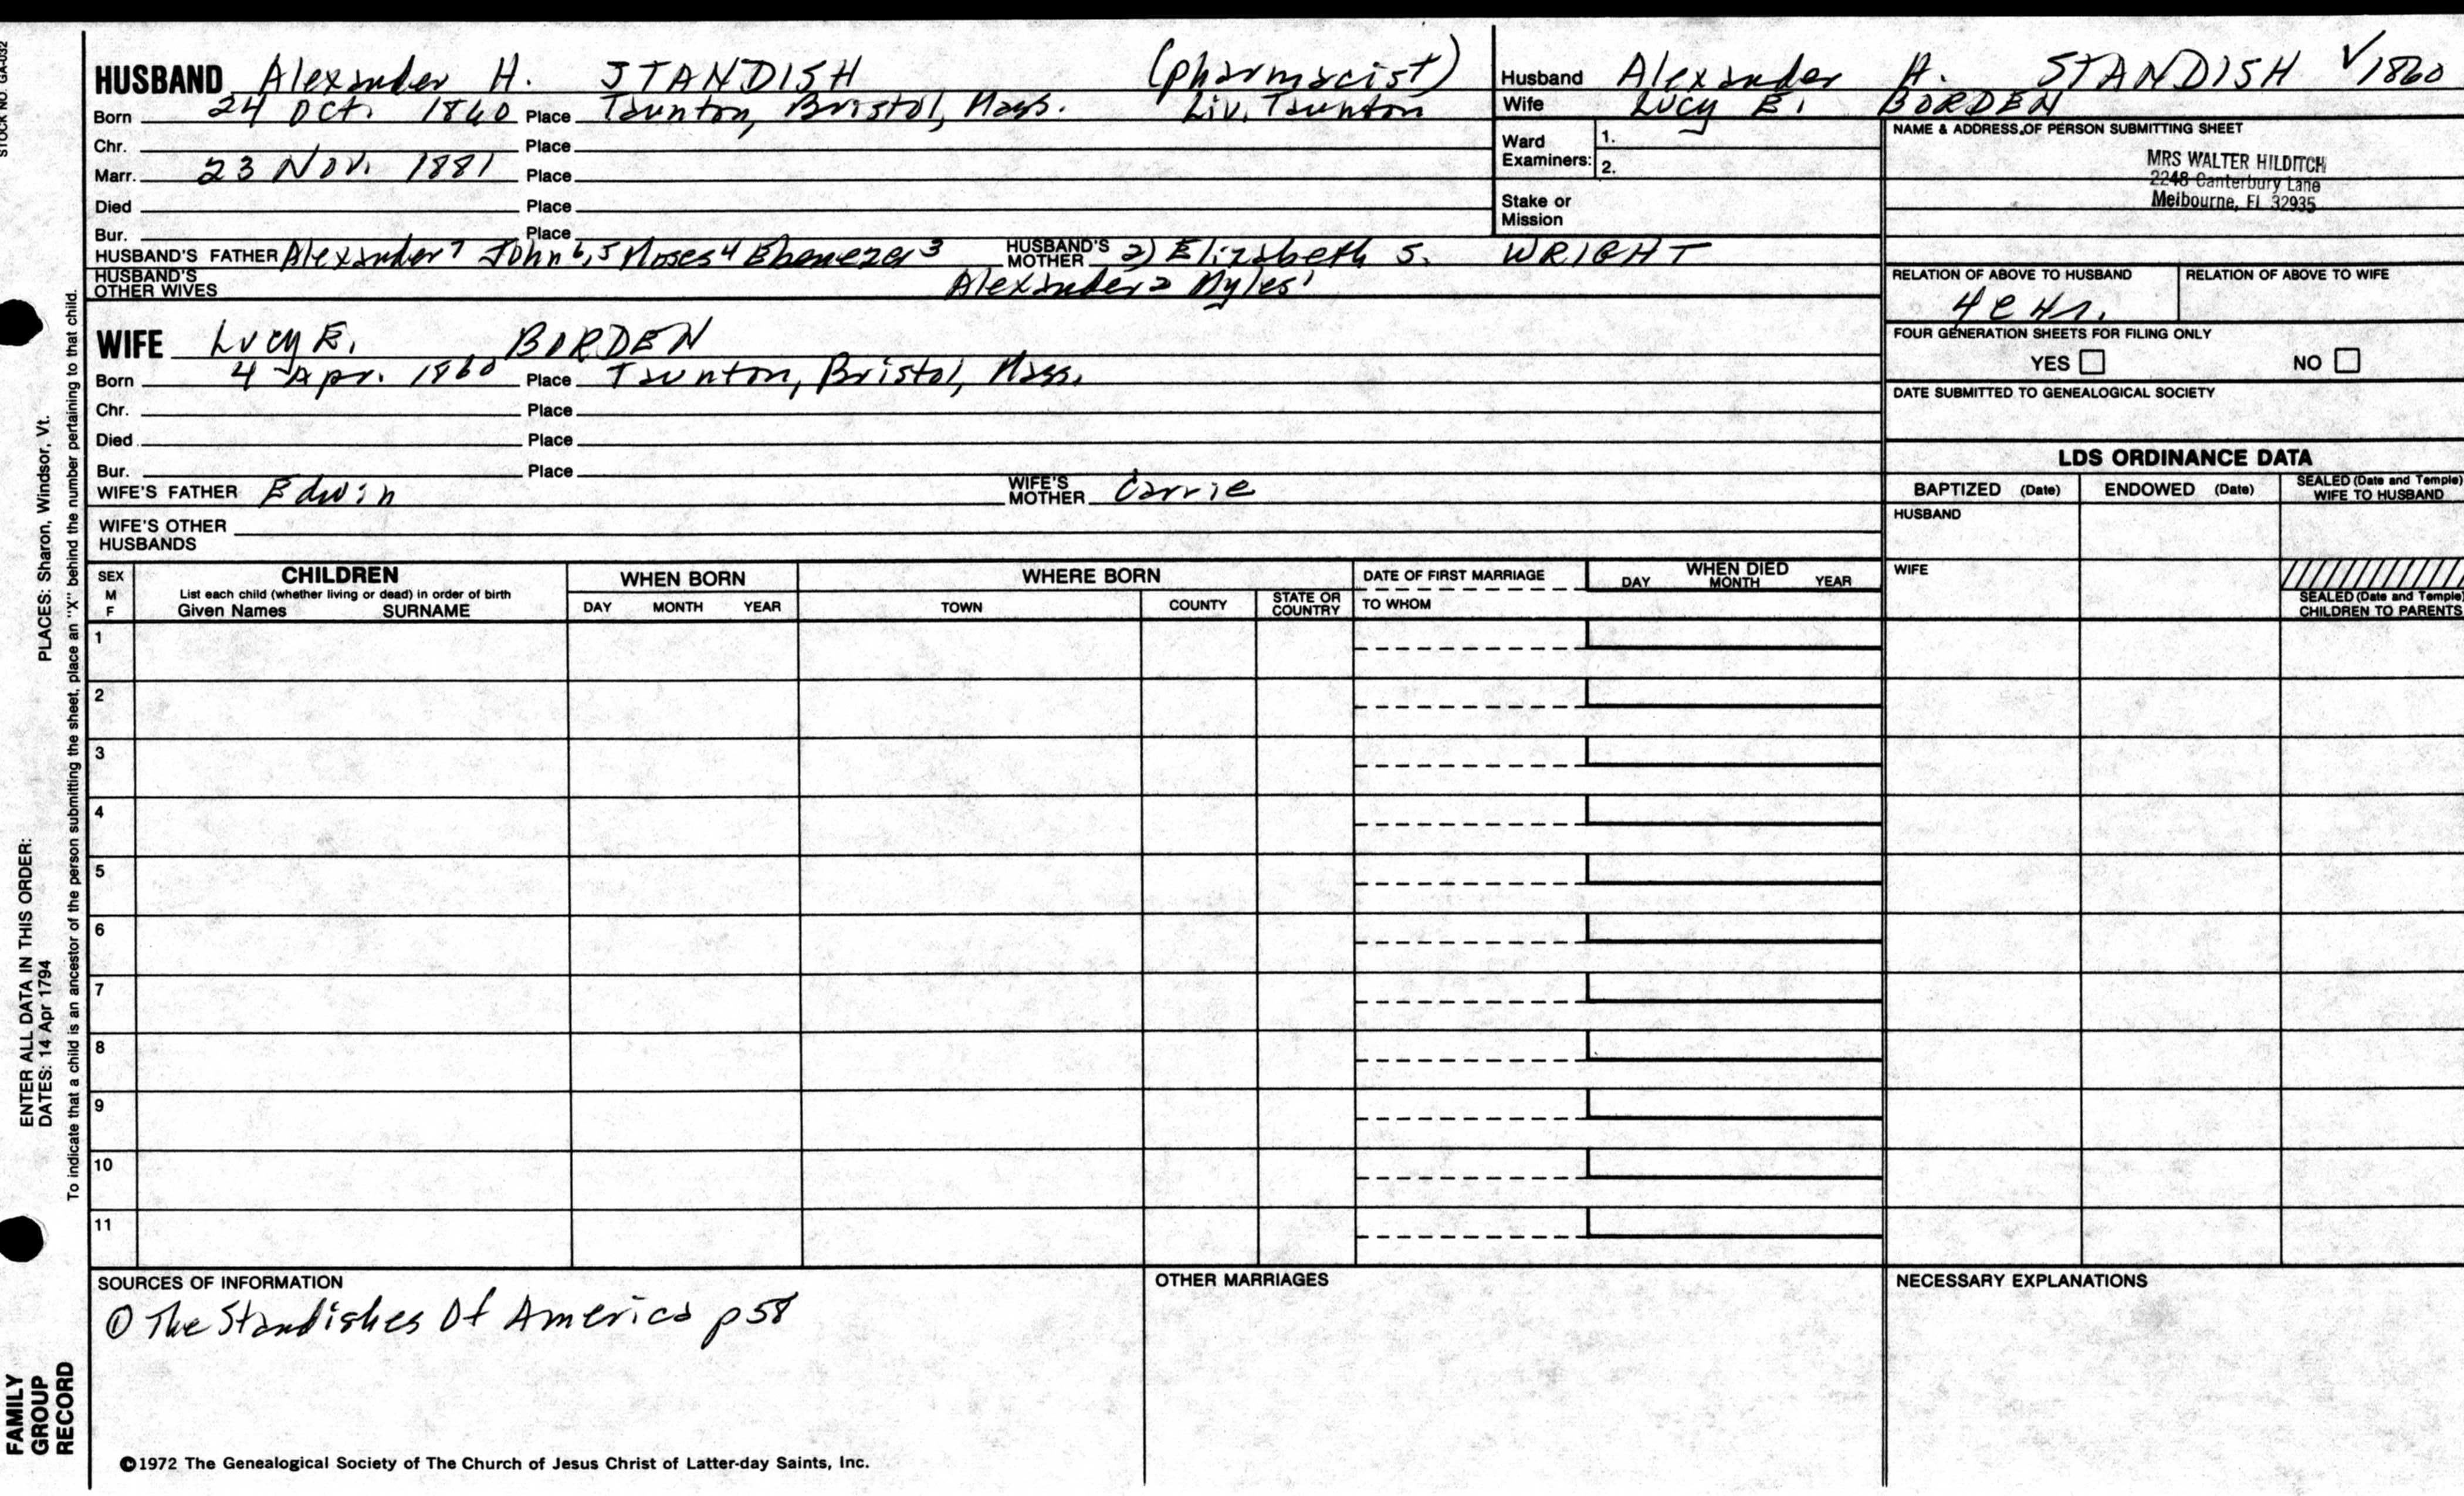 STOCK NO. GA-032
HUSBAND Alexander H. STANDISH (pharmacist)
Born 24 Oct. 1860 Place Taunton, Bristol, Mass. Liv. Taunton
Chr. Place
Marr. 23 Nov. 1881 Place
Died Place
Bur. Place
HUSBAND'S FATHER Alexander7 John6,5 Moses4 Ebenezer3 HUSBAND'S MOTHER 2) Elizabeth S. WRIGHT
HUSBAND'S OTHER WIVES Alexander2 Myles1
WIFE Lucy E. BORDEN
Born 4 Apr. 1860 Place Taunton, Bristol, Mass.
Chr. Place
Died Place
Bur. Place
WIFE'S FATHER Edwin WIFE'S MOTHER Carrie
WIFE'S OTHER HUSBANDS
Husband Alexander H. STANDISH V 1860
Wife Lucy E. BORDEN
Ward Examiners: 1.
2.
Stake or Mission
NAME & ADDRESS OF PERSON SUBMITTING SHEET
MRS WALTER HILDITCH
2248 Canterbury Lane
Melbourne, FL 32935
RELATION OF ABOVE TO HUSBAND RELATION OF ABOVE TO WIFE
FOUR GENERATION SHEETS FOR FILING ONLY
YES NO
DATE SUBMITTED TO GENEALOGICAL SOCIETY
LDS ORDINANCE DATA
BAPTIZED (Date) ENDOWED (Date) SEALED (Date and Temple) WIFE TO HUSBAND
HUSBAND
WIFE
SEALED (Date and Temple) CHILDREN TO PARENTS
SEX M F CHILDREN WHEN BORN WHERE BORN DATE OF FIRST MARRIAGE WHEN DIED
List each child (whether living or dead) in order of birth
Given Names SURNAME DAY MONTH YEAR TOWN COUNTY STATE OR COUNTRY TO WHOM DAY MONTH YEAR
1
2
3
4
5
6
7
8
9
10
11
SOURCES OF INFORMATION
① The Standishes Of America p58
OTHER MARRIAGES
NECESSARY EXPLANATIONS
©1972 The Genealogical Society of The Church of Jesus Christ of Latter-day Saints, Inc.
ENTER ALL DATA IN THIS ORDER:
DATES: 14 Apr 1794 PLACES: Sharon, Windsor, Vt.
To indicate that a child is an ancestor of the person submitting the sheet, place an "X" behind the number pertaining to that child.
FAMILY
GROUP
RECORD